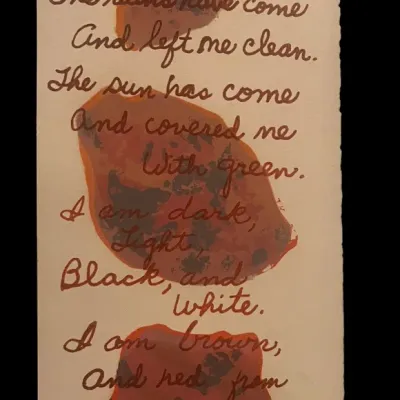 The rains have come
And left me clean.
The sun has come
And covered me
With green.
I am dark,
Light,
Black, and
White.
I am brown,
And red from